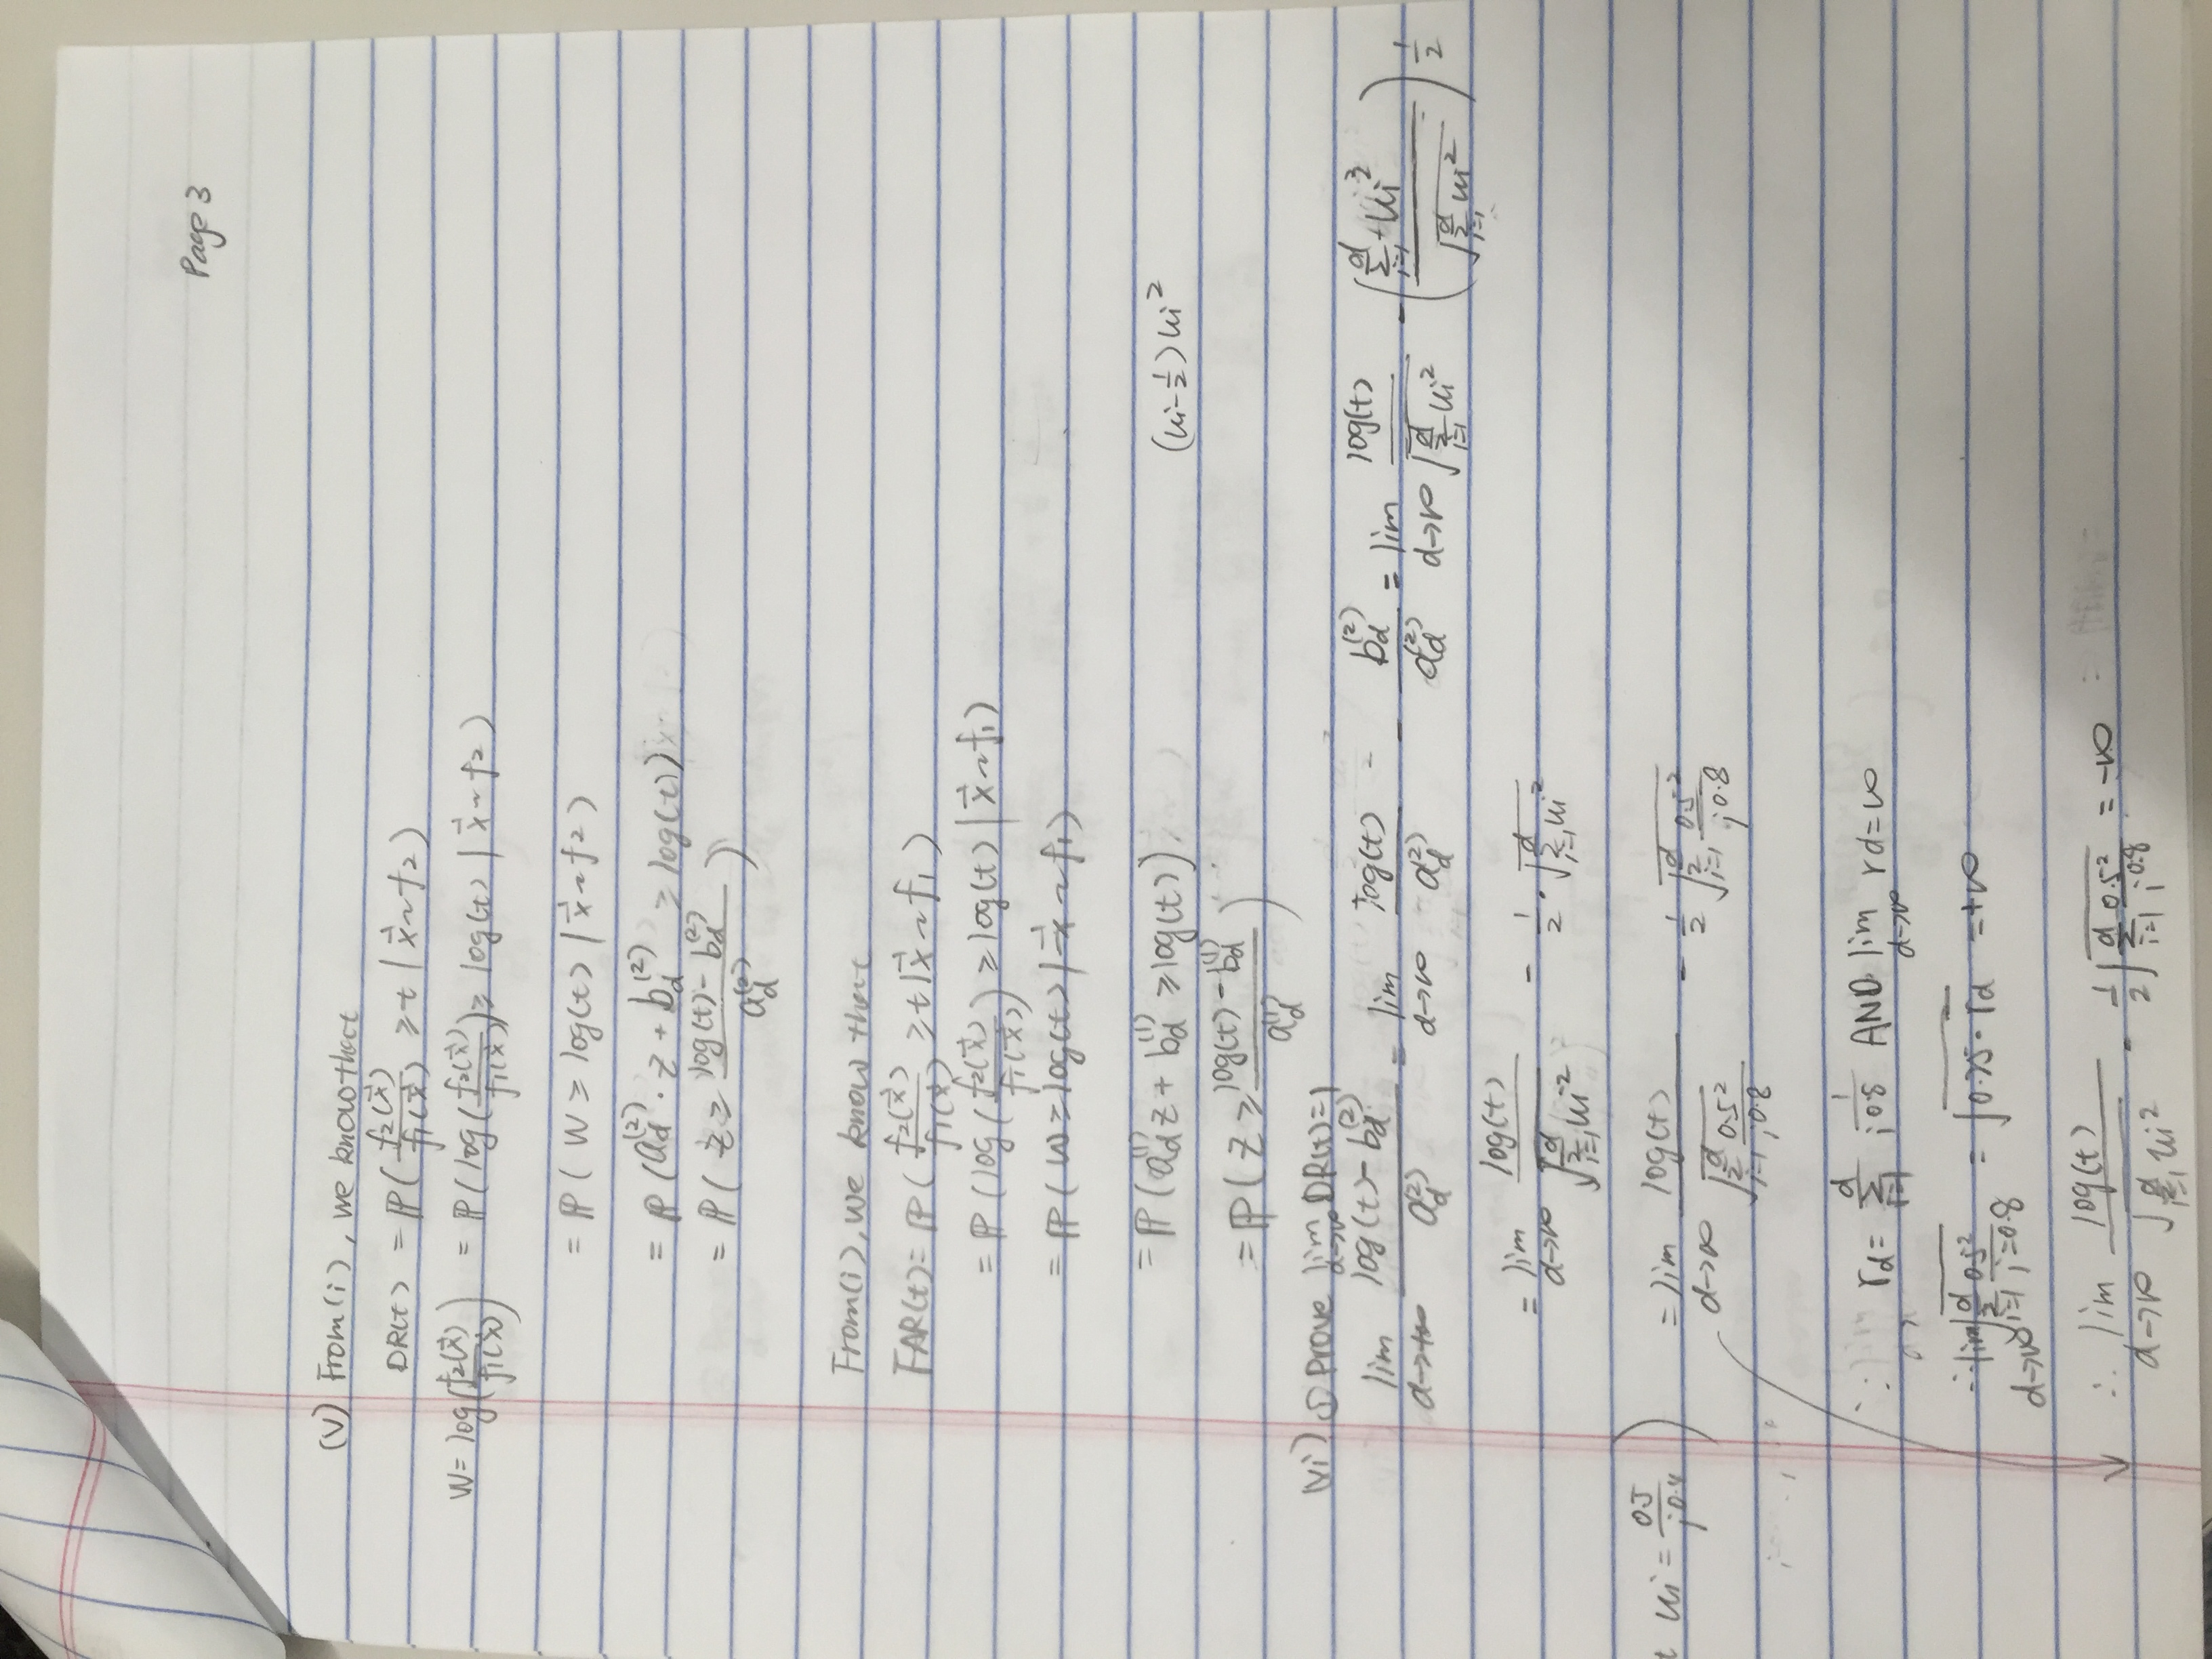 Page 3
(V) From(i), we know that
DR(t) = ℙ( f₂(x⃗)/f₁(x⃗) ≥ t | x⃗ ~ f₂ )
W = log( f₂(x⃗)/f₁(x⃗) ) = ℙ( log( f₂(x⃗)/f₁(x⃗) ) ≥ log(t) | x⃗ ~ f₂ )
= ℙ( W ≥ log(t) | x⃗ ~ f₂ )
= ℙ( a_d^(2) · z + b_d^(2) ≥ log(t) )
= ℙ( z ≥ (log(t) - b_d^(2)) / a_d^(2) )
From(i), we know that
FAR(t) = ℙ( f₂(x⃗)/f₁(x⃗) ≥ t | x⃗ ~ f₁ )
= ℙ( log( f₂(x⃗)/f₁(x⃗) ) ≥ log(t) | x⃗ ~ f₁ )
= ℙ( W ≥ log(t) | x⃗ ~ f₁ )
= ℙ( a_d^(1) z + b_d^(1) ≥ log(t) ) (ui - 1/2) ui²
= ℙ( Z ≥ (log(t) - b_d^(1)) / a_d^(1) )
(vi) ① Prove lim_{d→∞} DR(t) = 1
lim_{d→+∞} (log(t) - b_d^(2)) / a_d^(2) = lim_{d→∞} log(t) / a_d^(2) - b_d^(2) / a_d^(2) = lim_{d→∞} log(t) / √(Σ_{i=1}^d ui²) - ( Σ_{i=1}^d + ui² / √(Σ_{i=1}^d ui²) ) 1/2
= lim_{d→∞} log(t) / √(Σ_{i=1}^d ui²) - 1/2 · √(Σ_{i=1}^d ui²)
ui = 0.5 / i^0.4 ) = lim_{d→∞} log(t) / √(Σ_{i=1}^d 0.5² / i^0.8) - 1/2 √(Σ_{i=1}^d 0.5² / i^0.8)
∵ r_d = Σ_{i=1}^d 1 / i^0.8 AND lim_{d→∞} rd = ∞
∴ lim_{d→∞} √(Σ_{i=1}^d 0.5² / i=0.8) = √(0.25 · r_d) = +∞
∴ lim_{d→∞} log(t) / √(Σ_{i=1}^d ui²) - 1/2 √(Σ_{i=1}^d 0.5² / i^0.8) = -∞